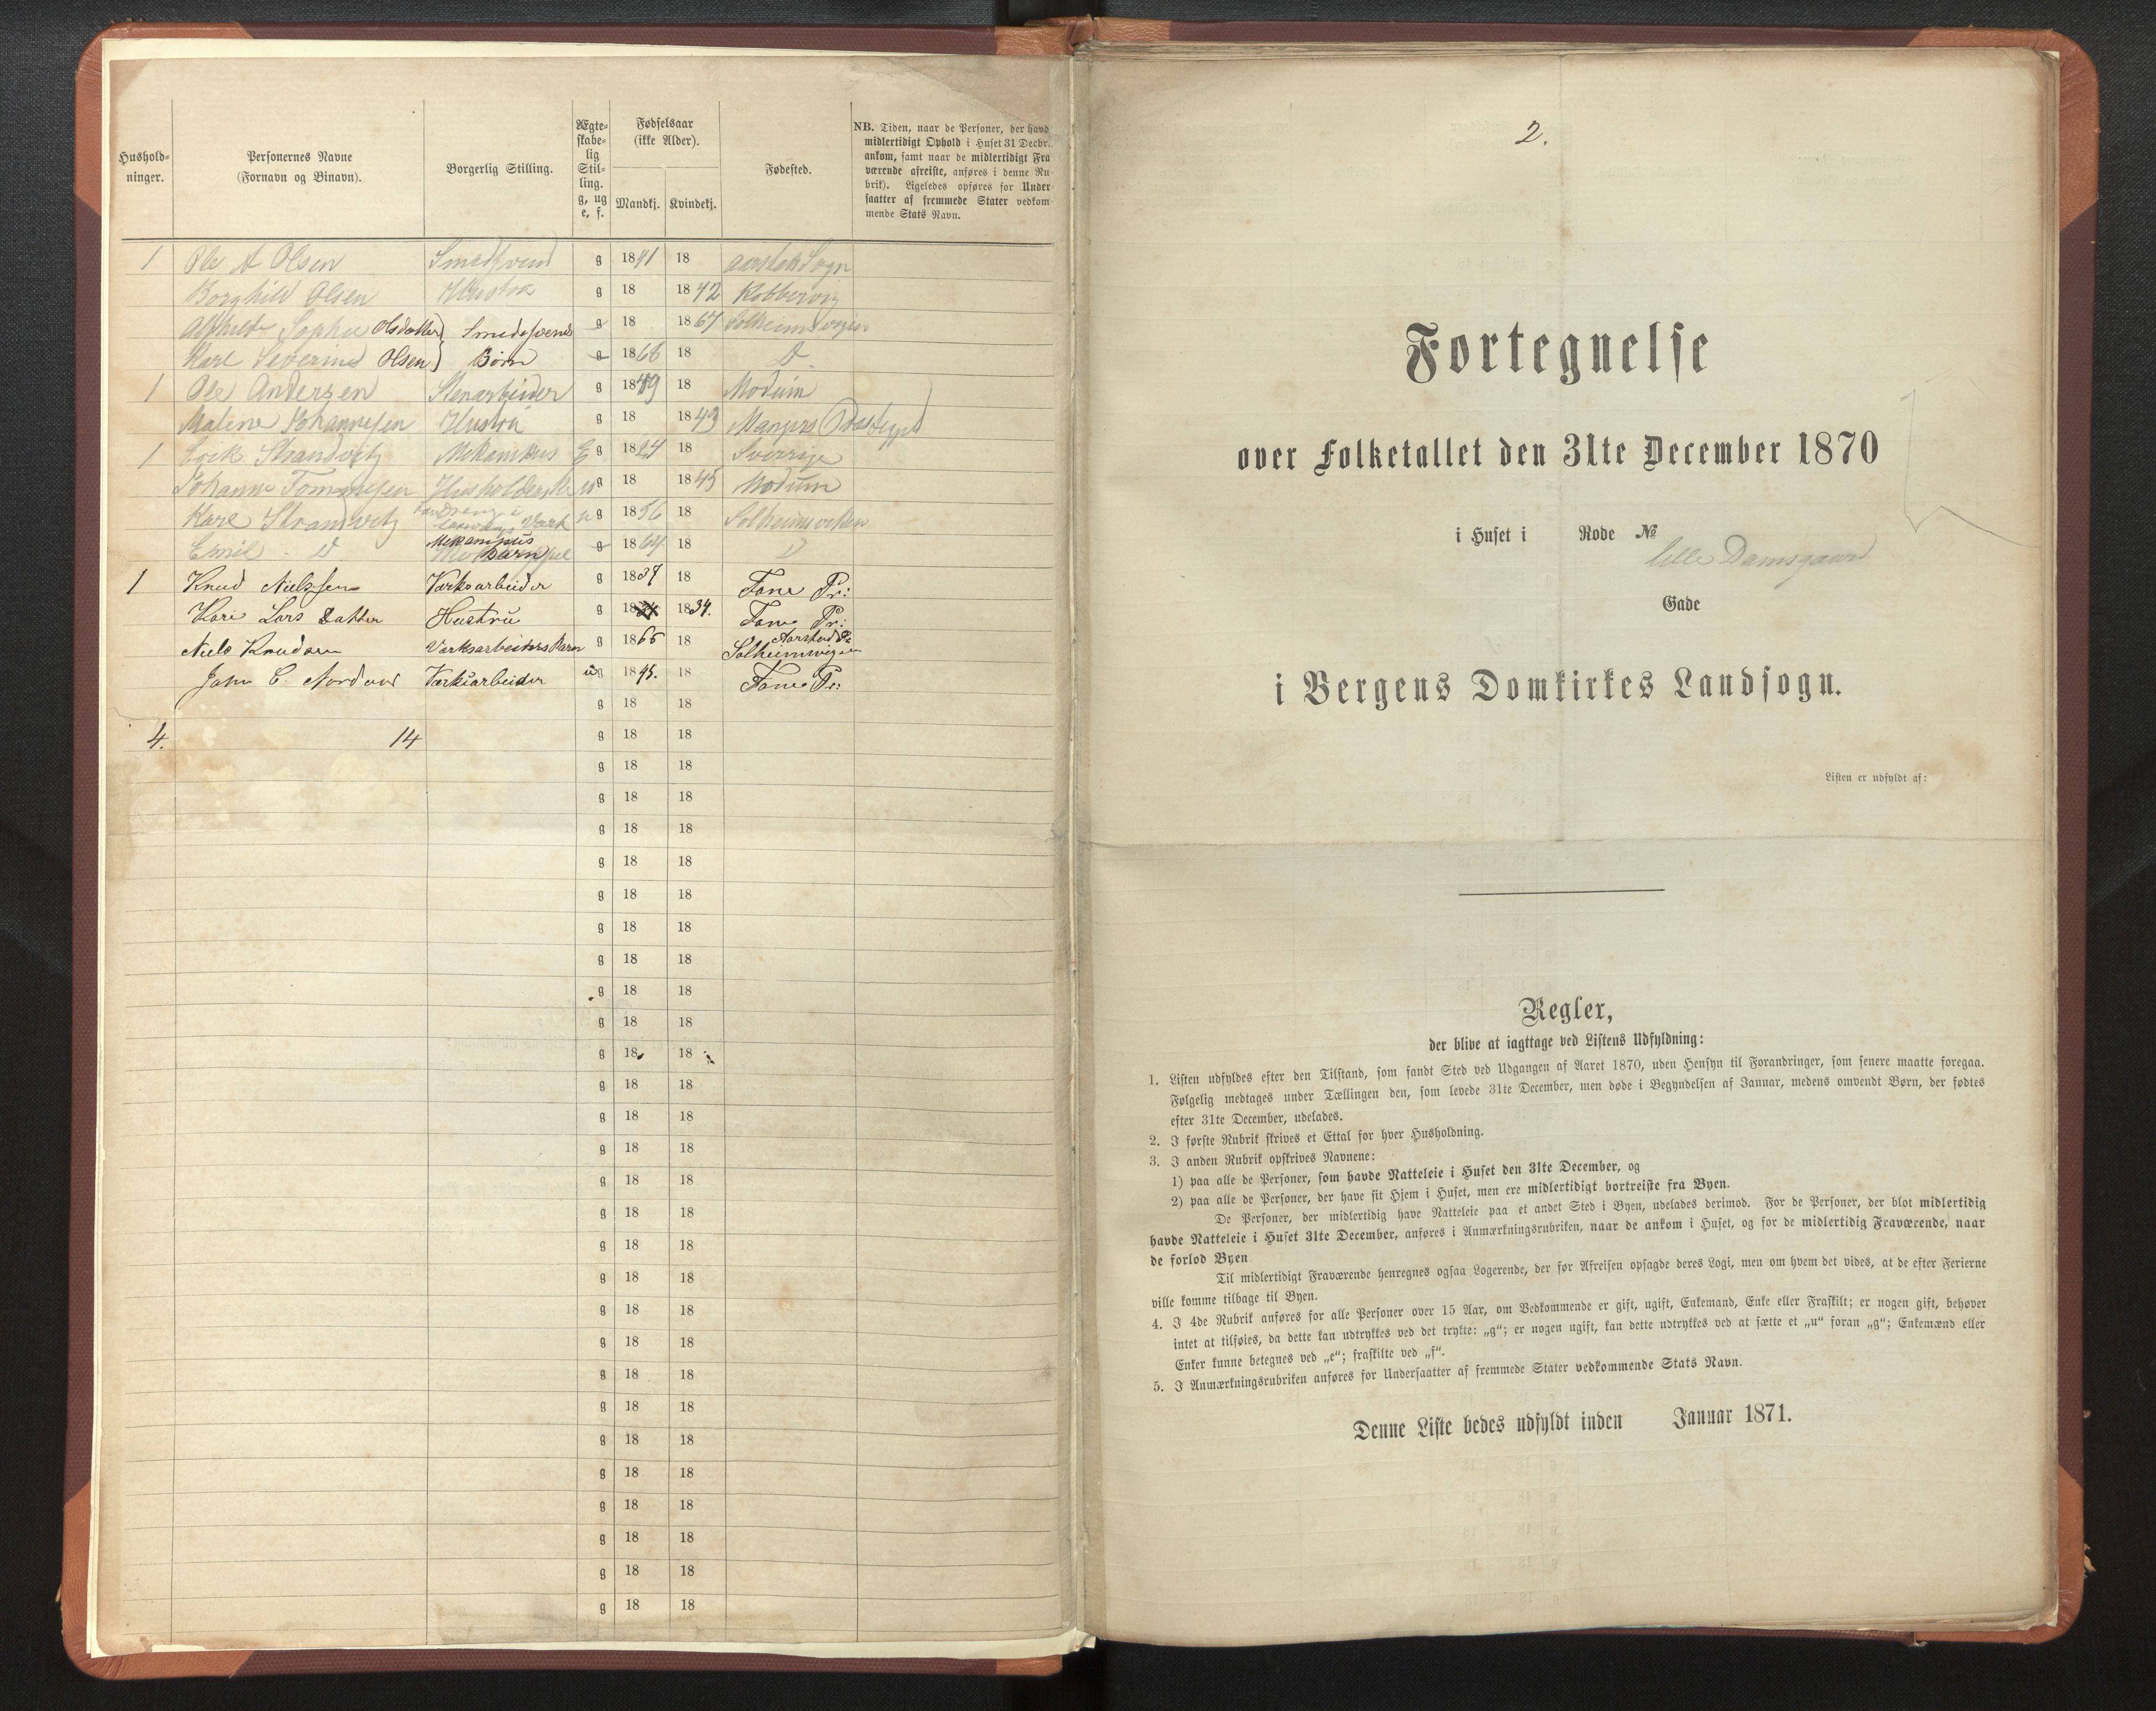 Hushold-
ninger.
Personernes Navne
(Fornavn og Binavn).
Borgerlig Stilling.
Ægte-
skabe-
lig
Stil-
ling.
g, ug
e, f.
Fødselsaar
(ikke Alder).
Mandkj. Kvindekj.
Fødested.
NB. Tiden, naar de Personer, der havd
midlertidigt Ophold i Huset 31 Decbr.
ankom, samt naar de midlertidigt Fra
værende afreiste, anføres i denne Ru
brik). Ligeledes opføres for Under-
saatter af fremmede Stater vedkom
mende Stats Navn.
1 Ole A Olsen Smedsvend g 1841 18 Sogn
Borghild Olsen Hustru g 18 1842 Kobbervig
Sophie Olsdatter } Smedsvends g 18 1867 Solheimsvigen
Karl Severin Olsen } Børn g 1868 18 D
1 Ole Andersen Stenarbeider g 1849 18 Modum
Maline Johannesen Hustru g 18 1843 Mangers Præstegjel
1 Erik Strandvitz Mekanikus E g 1824 18 Sverrige
Johanne Tommesen Husholderske u g 18 1845 Modum
Karl Strandvitz Værk u g 1856 18 Solheimsviken
Emil - D Mekanikus Barn g 1864 18 D
1 Knud Nielssen Værksarbeider g 1837 18 Fane Pr:
Kari Lars Datter Hustru g 18 1834. Fane Pr:
Niels Knudsen Værksarbeiders Barn g 1866 18 Aarstad Solheimsvigen
John C. Nordaas Værksarbeider u g 1845. 18 Fane Pr:
g 18 18
4. 14 g 18 18
g 18 18
g 18 18
g 18 18
g 18 18
g 18 18
g 18 18
g 18 18
g 18 18
g 18 18
g 18 18
g 18 18
g 18 18
g 18 18
g 18 18
g 18 18
g 18 18
g 18 18
g 18 18
g 18 18
g 18 18
g 18 18
g 18 18
g 18 18
g 18 18
g 18 18
g 18 18
g 18 18
2.
Fortegnelse
over Folketallet den 31te December 1870
i Huset i Rode №
Lille Damsgaard
Gade
i Bergens Domkirkes Landsogn.
Listen er udfyldt af:
Regler,
der blive at iagttage ved Listens Udfyldning:
1. Listen udfyldes efter den Tilstand, som fandt Sted ved Udgangen af Aaret 1870, uden Hensyn til Forandringer, som senere maatte foregaa.
Følgelig medtages under Tællingen den, som levede 31te December, men døde i Begyndelsen af Januar, medens omvendt Børn, der fødtes
efter 31te December, udelades.
2. I første Rubrik skrives et Ettal for hver Husholdning.
3. I anden Rubrik opskrives Navnene:
1) paa alle de Personer, som havde Natteleie i Huset den 31te December, og
2) paa alle de Personer, der have sit Hjem i Huset, men ere midlertidigt bortreiste fra Byen.
De Personer, der midlertidig have Natteleie paa et andet Sted i Byen, udelades derimod. For de Personer, der blot midlertidig
havde Natteleie i Huset 31te December, anføres i Anmærkningsrubriken, naar de ankom i Huset, og for de midlertidig Fraværende, naar
de forlod Byen
Til midlertidigt Fraværende henregnes ogsaa Logerende, der før Afreisen opsagde deres Logi, men om hvem det vides, at de efter Ferierne
ville komme tilbage til Byen.
4. I 4de Rubrik anføres for alle Personer over 15 Aar, om Vedkommende er gift, ugift, Enkemand, Enke eller Fraskilt; er nogen gift, behøver
intet at tilføies, da dette kan udtrykkes ved det trykte: „g“; er nogen ugift, kan dette udtrykkes ved at sætte et „u“ foran „g“; Enkemænd eller
Enker kunne betegnes ved „e“; fraskilte ved „f“.
5. I Anmærkningsrubriken anføres for Undersaatter af fremmede Stater vedkommende Stats Navn.
Denne Liste bedes udfyldt inden Januar 1871.